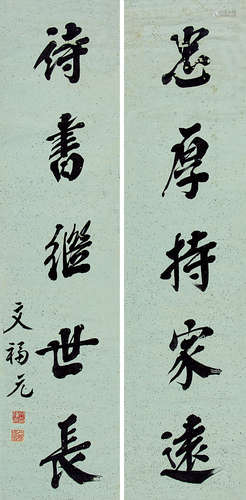 忠厚持家遠
詩書繼世長
文福元